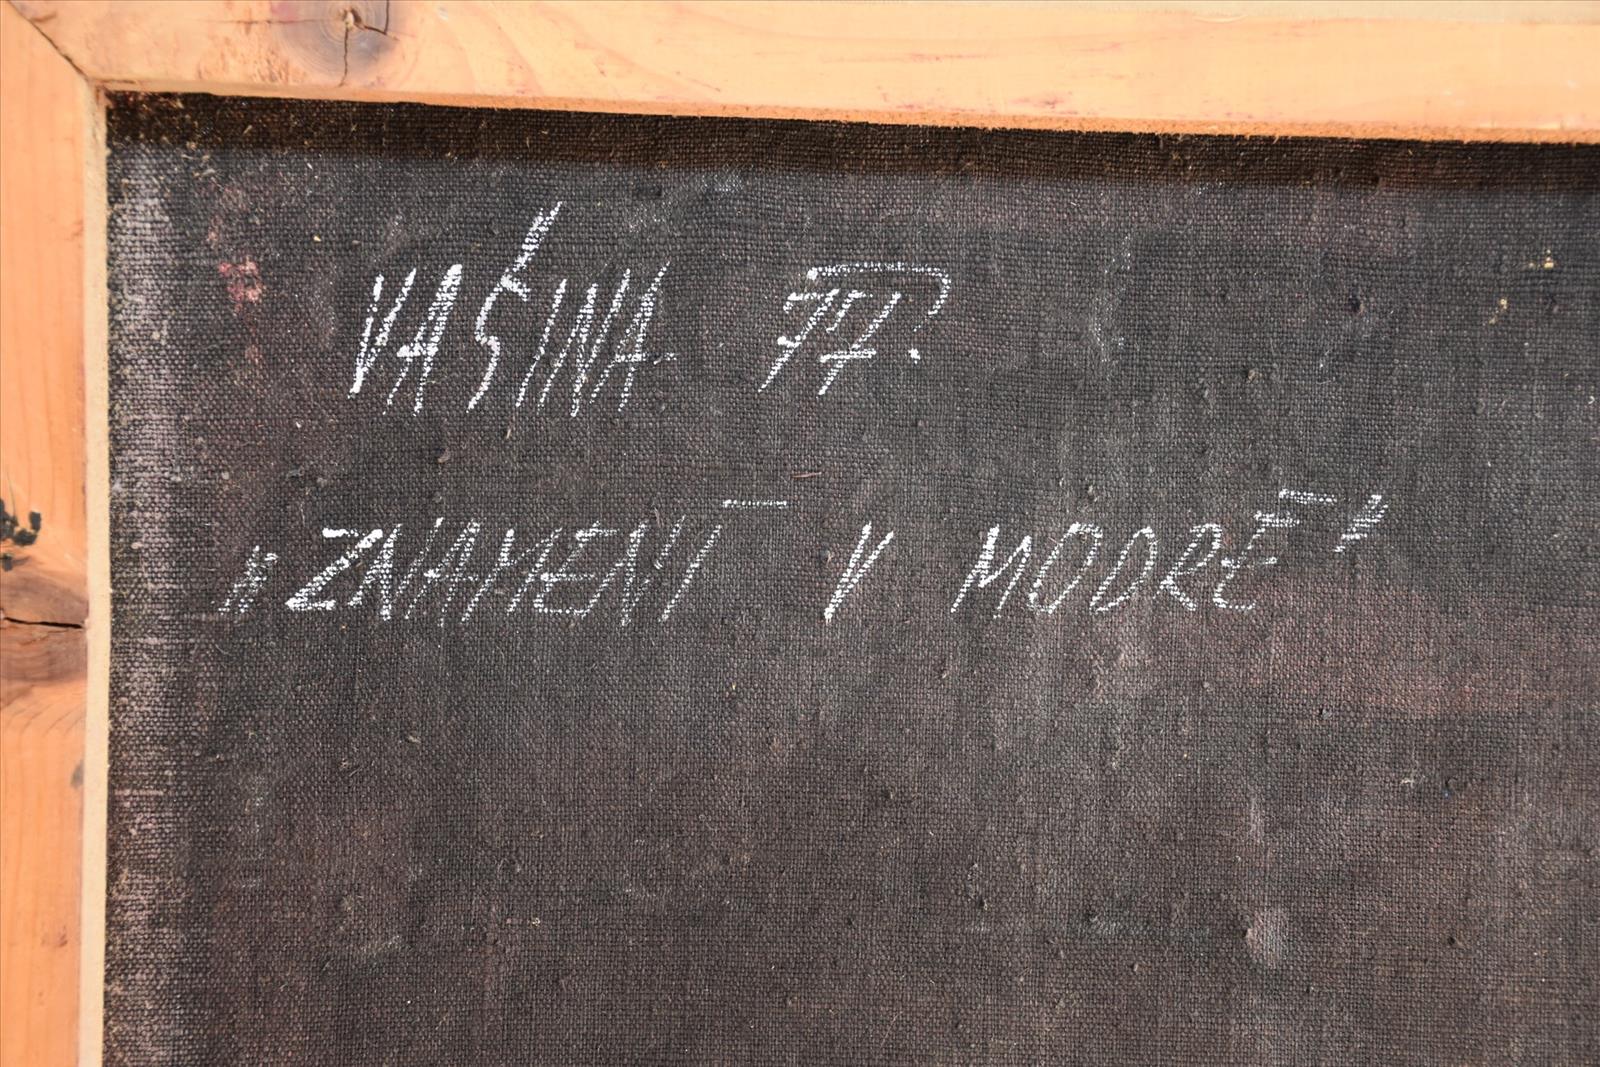 VAŠINA 77.
„ZNAMENÍ V MODRÉ"